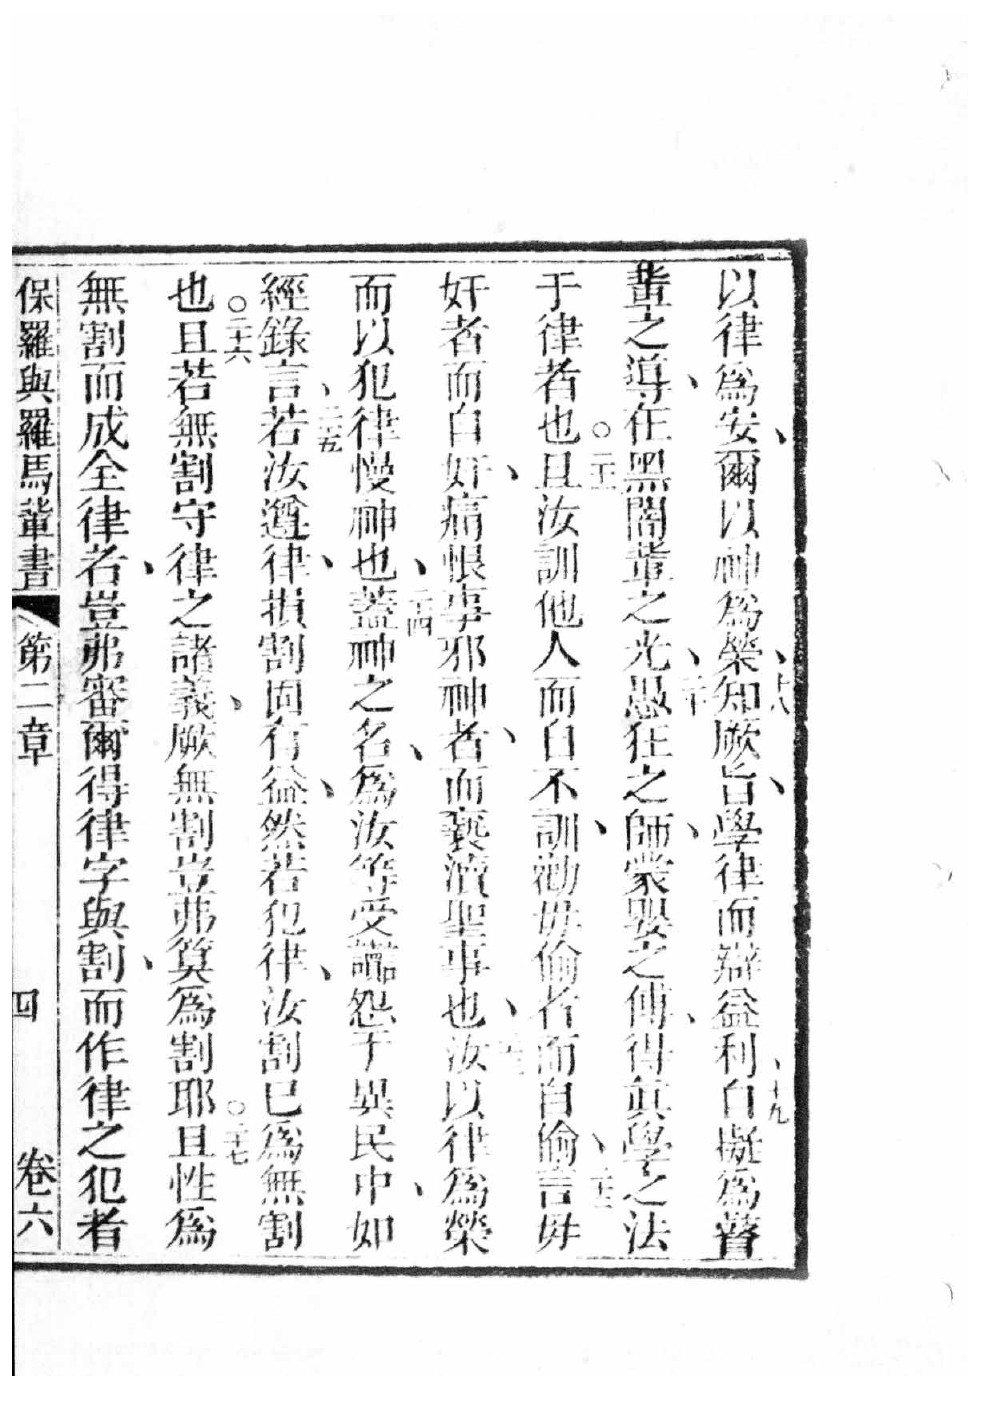 以律爲安、爾以神爲榮、十八知厥旨、學律而辯益利、十九自擬爲瞽
輩之導、在黑闇輩之光、二十愚狂之師、蒙嬰之傅、得眞學之法
于律者也○二十一且汝訓他人而自不訓、勸毋偷者而自偷、二十二言毋
奸者而自奸、痛恨事邪神者、而褻瀆聖事也、二十三汝以律爲榮
而以犯律慢神也、二十四蓋神之名、爲汝等受讟怨于異民中、如
經錄言、二十五若汝遵律、損割固有益、然若犯律、汝割已爲無割
也○二十六且若無割守律之諸義、厥無割豈弗算爲割耶○二十七且性爲
無割而成全律者、豈弗審爾得律字與割、而作律之犯者
保羅與羅馬輩書 第二章 四 卷六